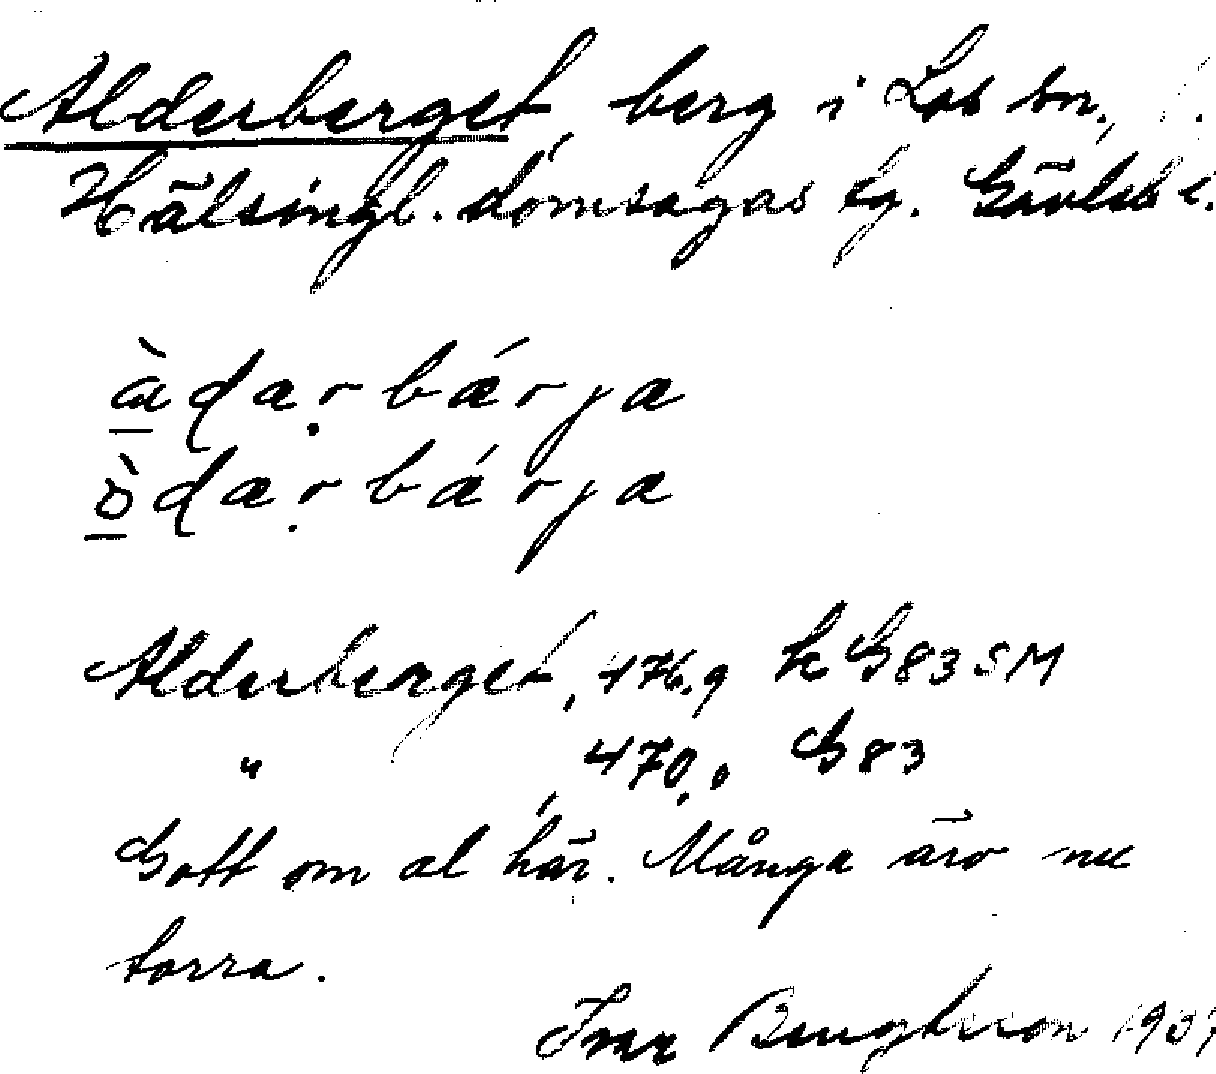 Alderberget, berg i Los sn.,
Hälsingl. domsagas tg. Gävleb l.
æ̀dærbǽrja
ò̱dærbǽrja
Alderberget, 476,9 k G83SM
" , 470,0 G83
Gott om al här. Många äro nu
torra.
Ivar Bengtsson 1937